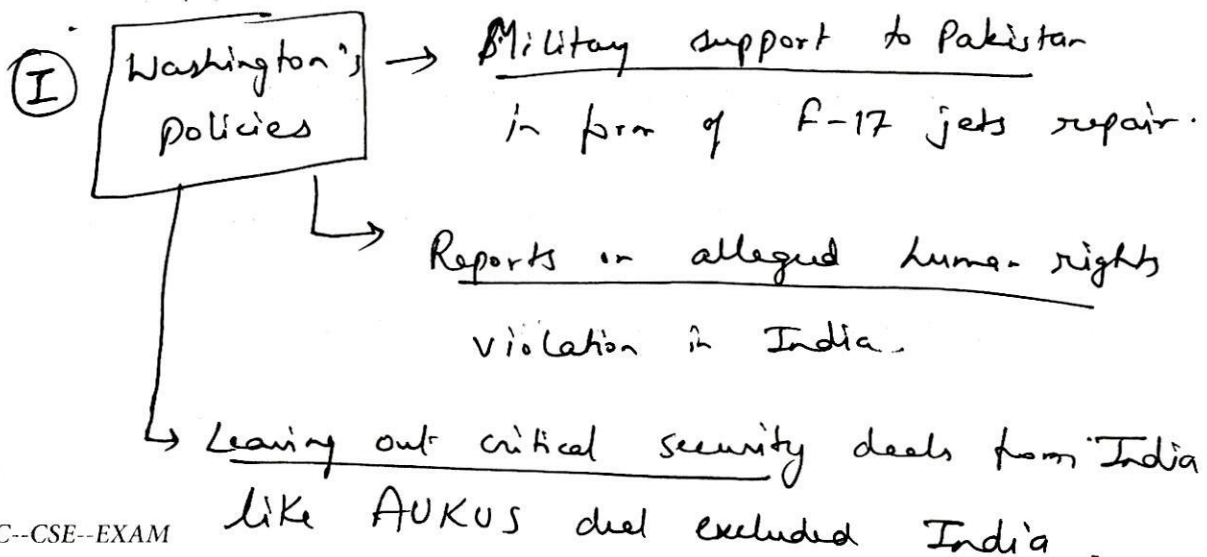 I
Washington's
policies
→ Military support to Pakistan
in form of F-17 jets repair.
→ Reports on alleged human rights
violation in India.
→ Leaving out critical security deals from India
like AUKUS deal excluded India.
C--CSE--EXAM